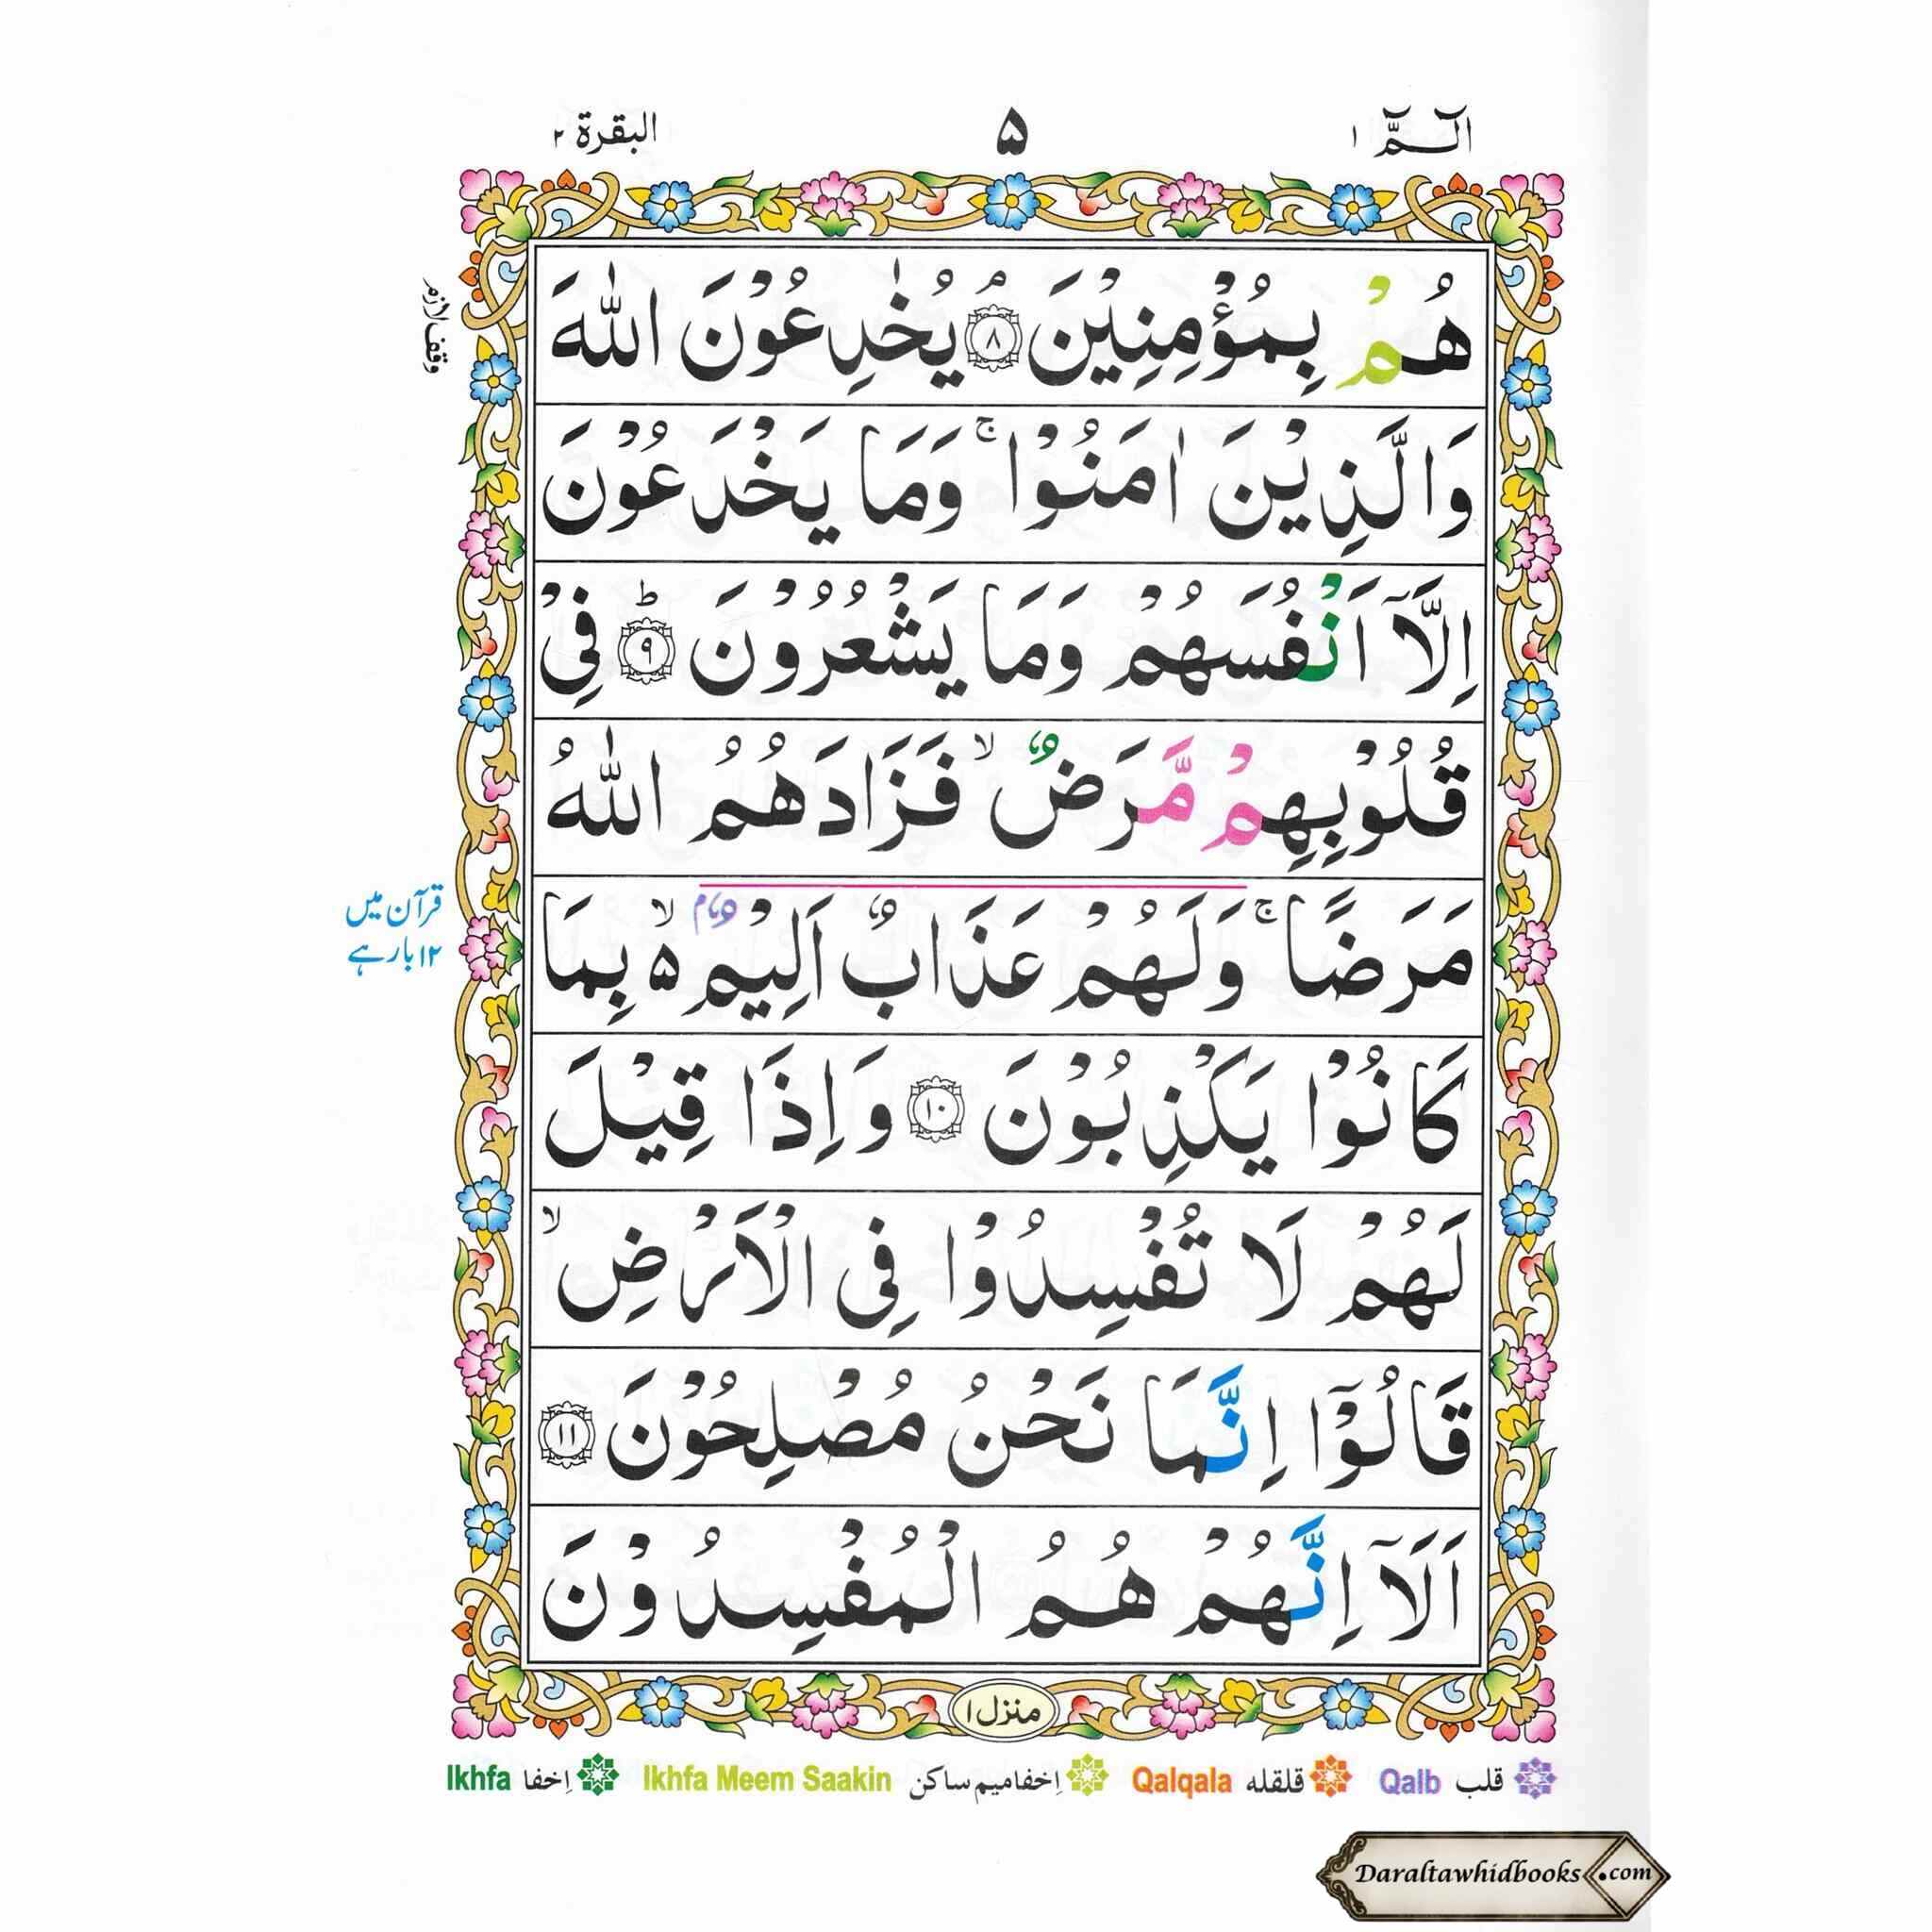 الٓـمّٓ ١
۵
البقرة ٢
هُمْ بِمُؤْمِنِيْنَ ۘ ۝٨ يُخٰدِعُوْنَ اللّٰهَ
وقف لازم
وَالَّذِيْنَ اٰمَنُوْا ۚ وَمَا يَخْدَعُوْنَ
اِلَّآ اَنْفُسَهُمْ وَمَا يَشْعُرُوْنَ ؕ ۝٩ فِيْ
قُلُوْبِهِمْ مَّرَضٌ ۙ فَزَادَهُمُ اللّٰهُ
مَرَضًا ۚ وَلَهُمْ عَذَابٌ اَلِيْمٌۢ ۵ ۙ بِمَا
قرآن میں
١٢ بار ہے
كَانُوْا يَكْذِبُوْنَ ۝١٠ وَاِذَا قِيْلَ
لَهُمْ لَا تُفْسِدُوْا فِي الْاَرْضِ ۙ
قَالُوْٓا اِنَّمَا نَحْنُ مُصْلِحُوْنَ ۝١١
اَلَآ اِنَّهُمْ هُمُ الْمُفْسِدُوْنَ
منزل ١
قلب Qalb قلقله Qalqala اِخفا میم ساکن Ikhfa Meem Saakin اِخفا Ikhfa
Daraltawhidbooks.com